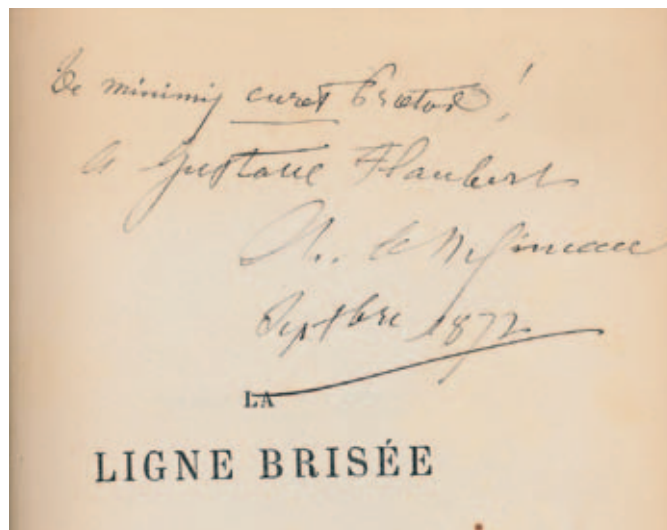 De minimis curet Praetor !
A Gustave Flaubert
Septbre 1872
LA
LIGNE BRISÉE